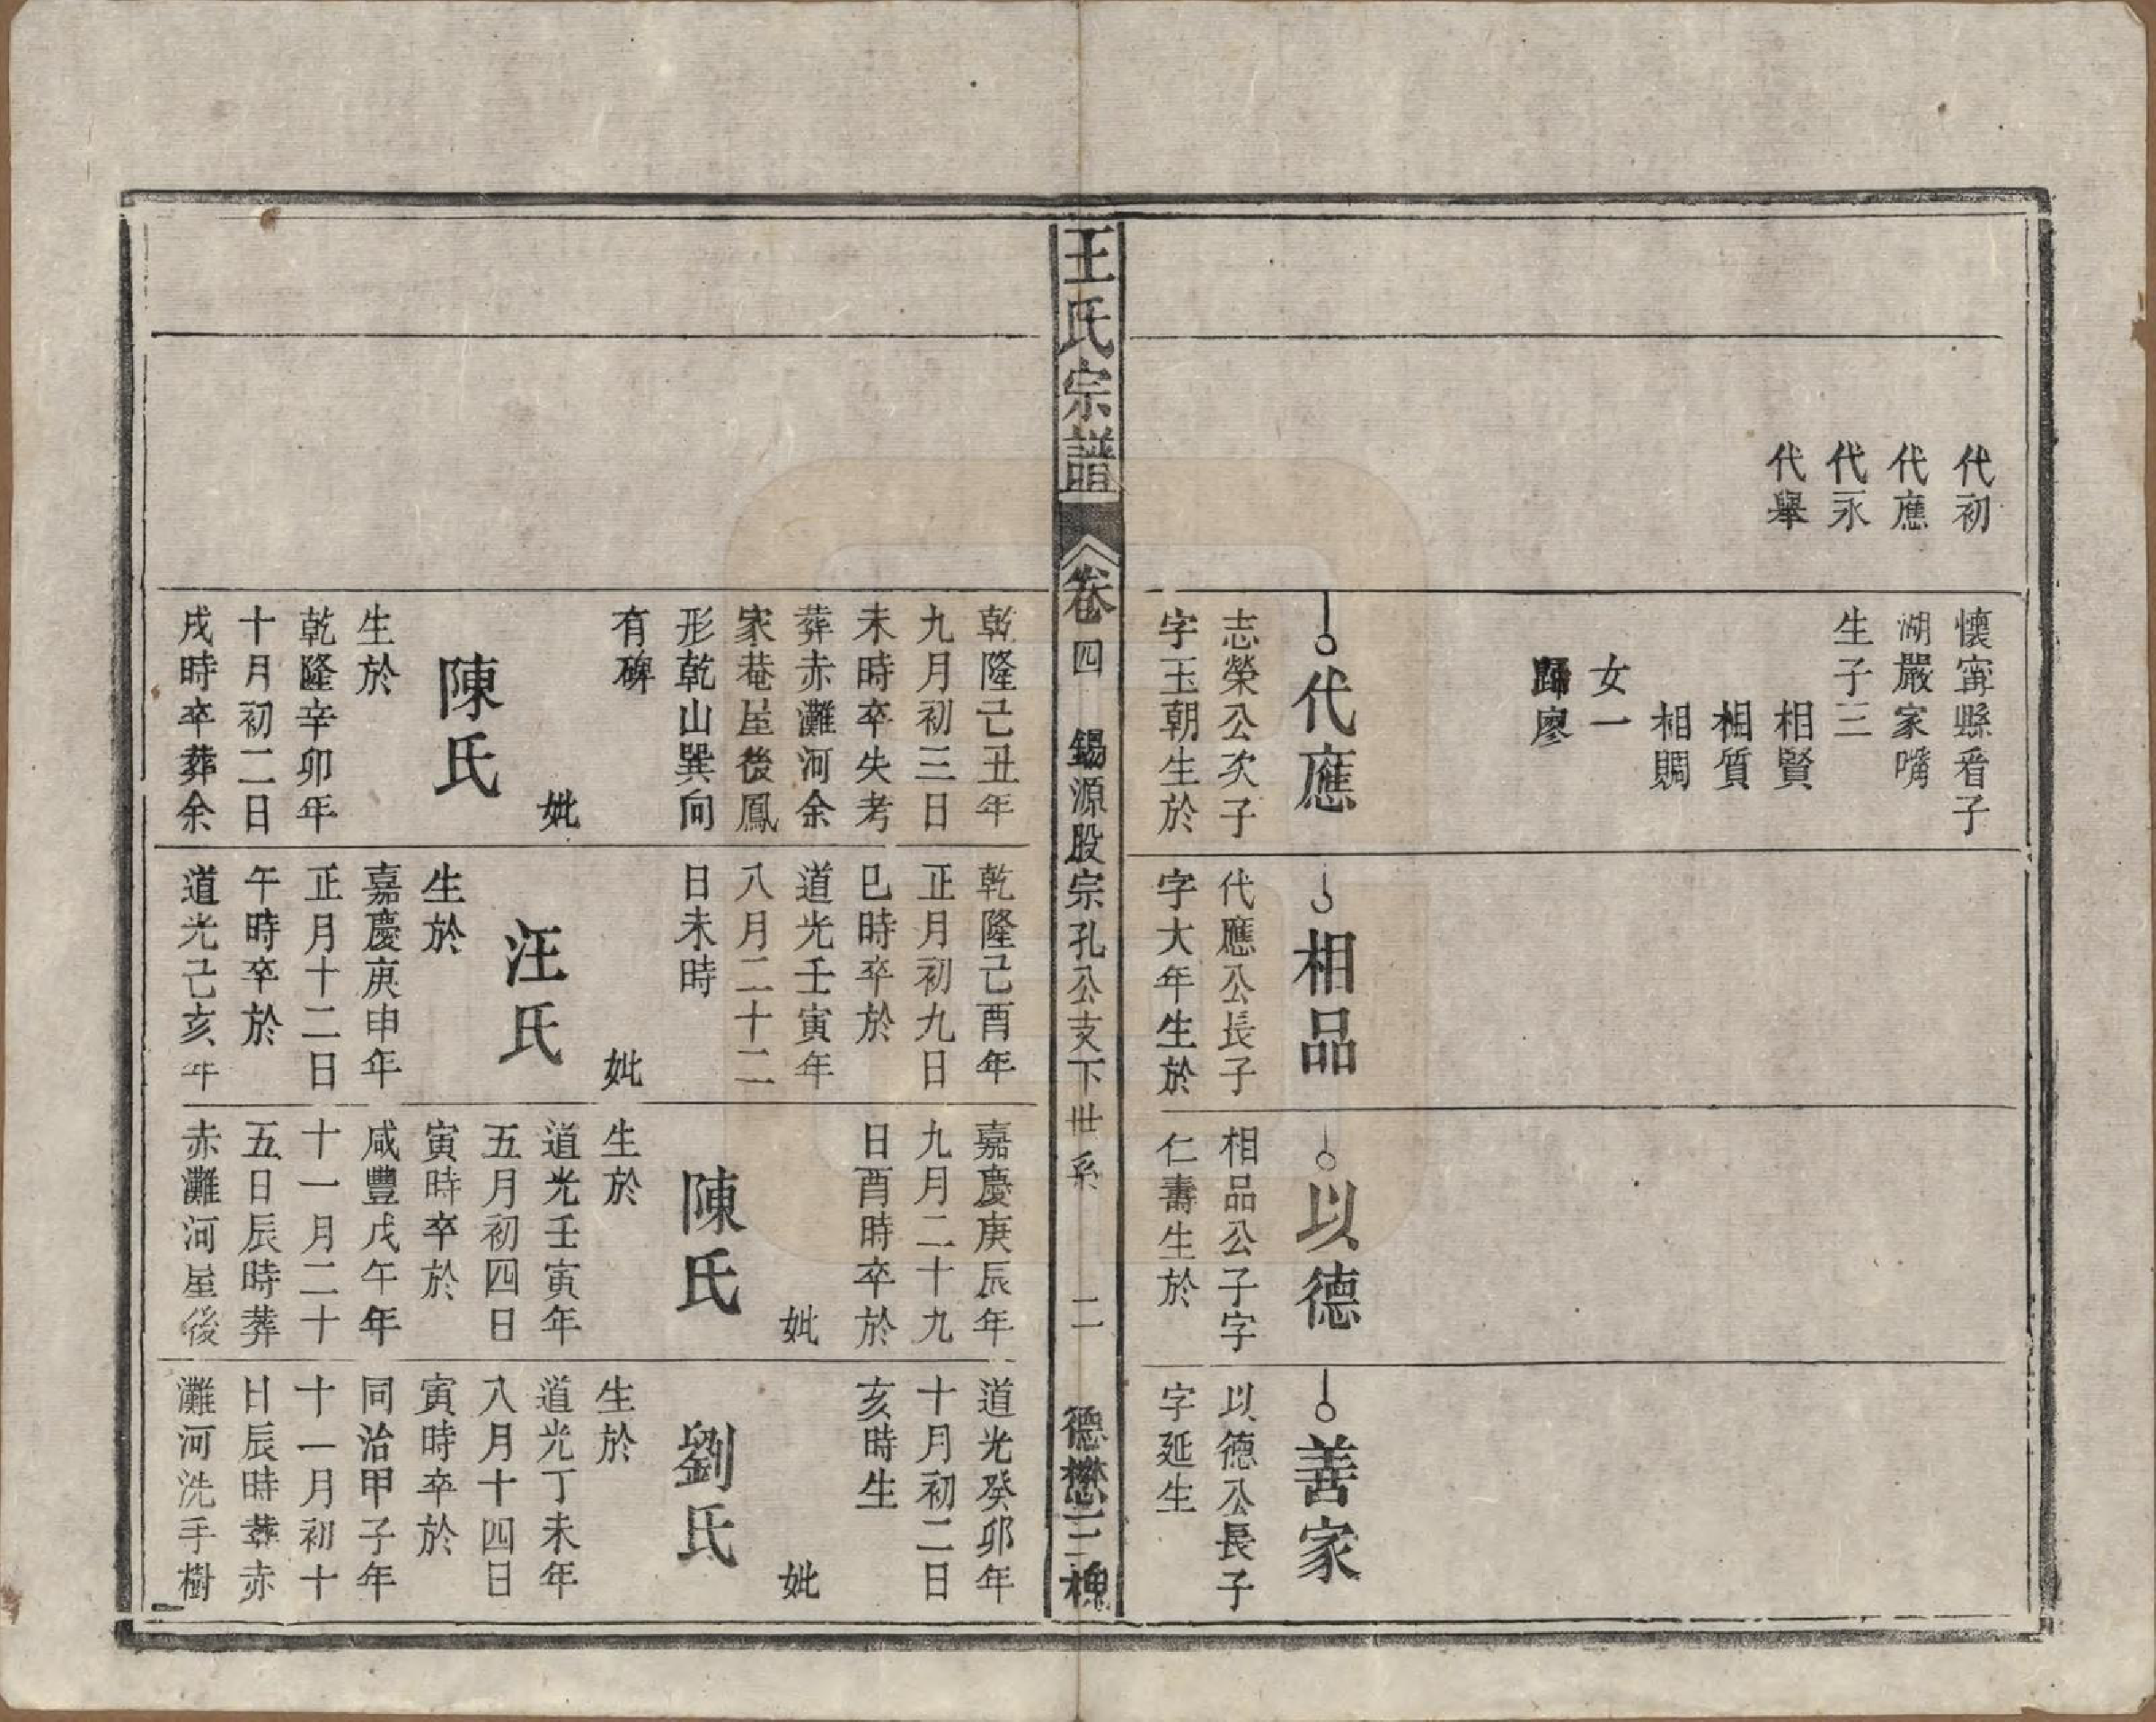 代初
代應
代永
代舉
懷甯縣看子
湖嚴家嘴
生子三
相賢
相質
相賙
女一
歸廖
代應
志榮公次子
字玉朝生於
相品
代應公長子
字大年生於
以德
相品公子字
仁壽生於
善家
以德公長子
字延生
王氏宗譜
卷四
錫源股宗孔公支下世系
二
德懋三槐
乾隆己丑年
九月初三日
未時卒失考
葬赤灘河余
家菴屋後鳳
形乾山巽向
有碑
妣
陳氏
生於
乾隆辛卯年
十月初二日
戌時卒葬余
乾隆己酉年
正月初九日
巳時卒於
道光壬寅年
八月二十二
日未時
妣
汪氏
生於
嘉慶庚申年
正月十二日
午時卒於
道光己亥年
嘉慶庚辰年
九月二十九
日酉時卒於
妣
陳氏
生於
道光壬寅年
五月初四日
寅時卒於
咸豐戊午年
十一月二十
五日辰時葬
赤灘河屋後
道光癸卯年
十月初二日
亥時生
妣
劉氏
生於
道光丁未年
八月十四日
寅時卒於
同治甲子年
十一月初十
日辰時葬赤
灘河洗手樹